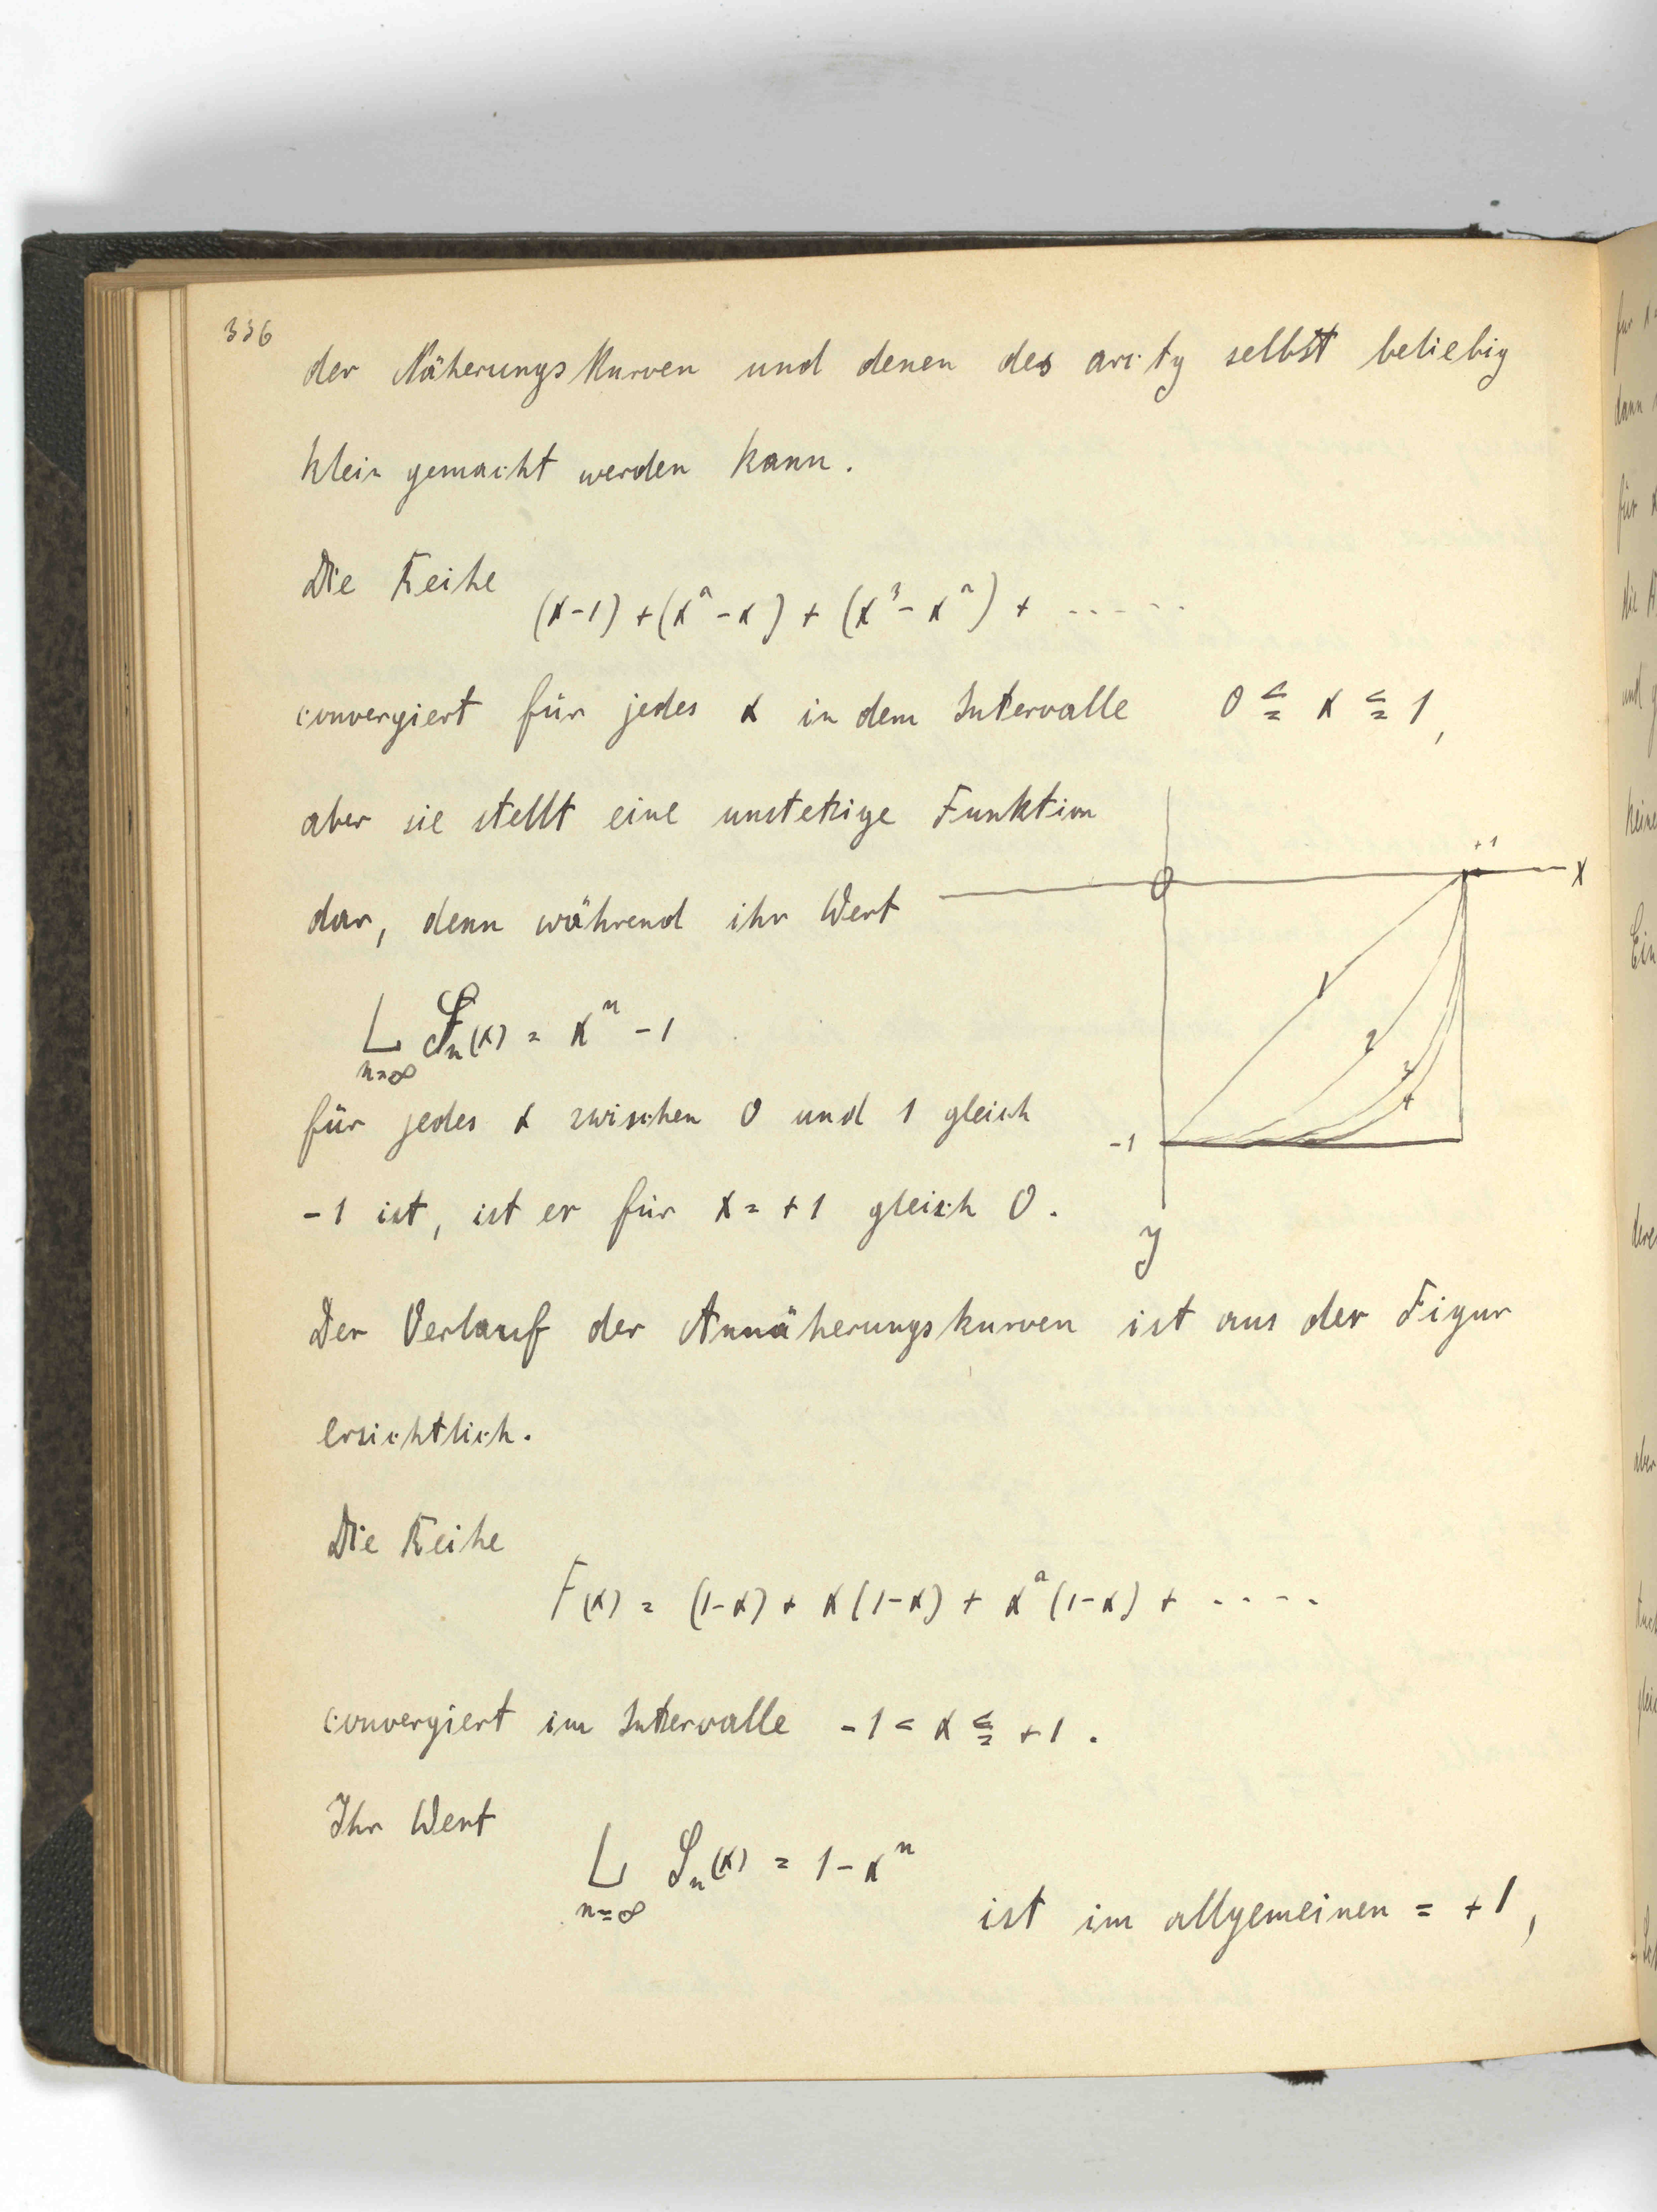 336
der Näherungskurven und denen des arc tg selbst beliebig
klein gemacht werden kann.
Die Reihe
(x-1) + (x² - x) + (x³ - x²) + .....
convergiert für jedes x in dem Intervalle 0 ≦ x ≦ 1,
aber sie stellt eine unstetige Funktion
dar, denn während ihr Wert
L Sₙ(x) = xⁿ - 1
n=∞
für jedes x zwischen 0 und 1 gleich
-1 ist, ist er für x = +1 gleich 0.
+1
0
x
1
2
3
4
-1
y
Der Verlauf der Annäherungskurven ist aus der Figur
ersichtlich.
Die Reihe
F(x) = (1-x) + x(1-x) + x²(1-x) + .....
convergiert im Intervalle -1 < x ≦ +1.
Ihr Wert
L Sₙ(x) = 1 - xⁿ
n=∞
ist im allgemeinen = +1,